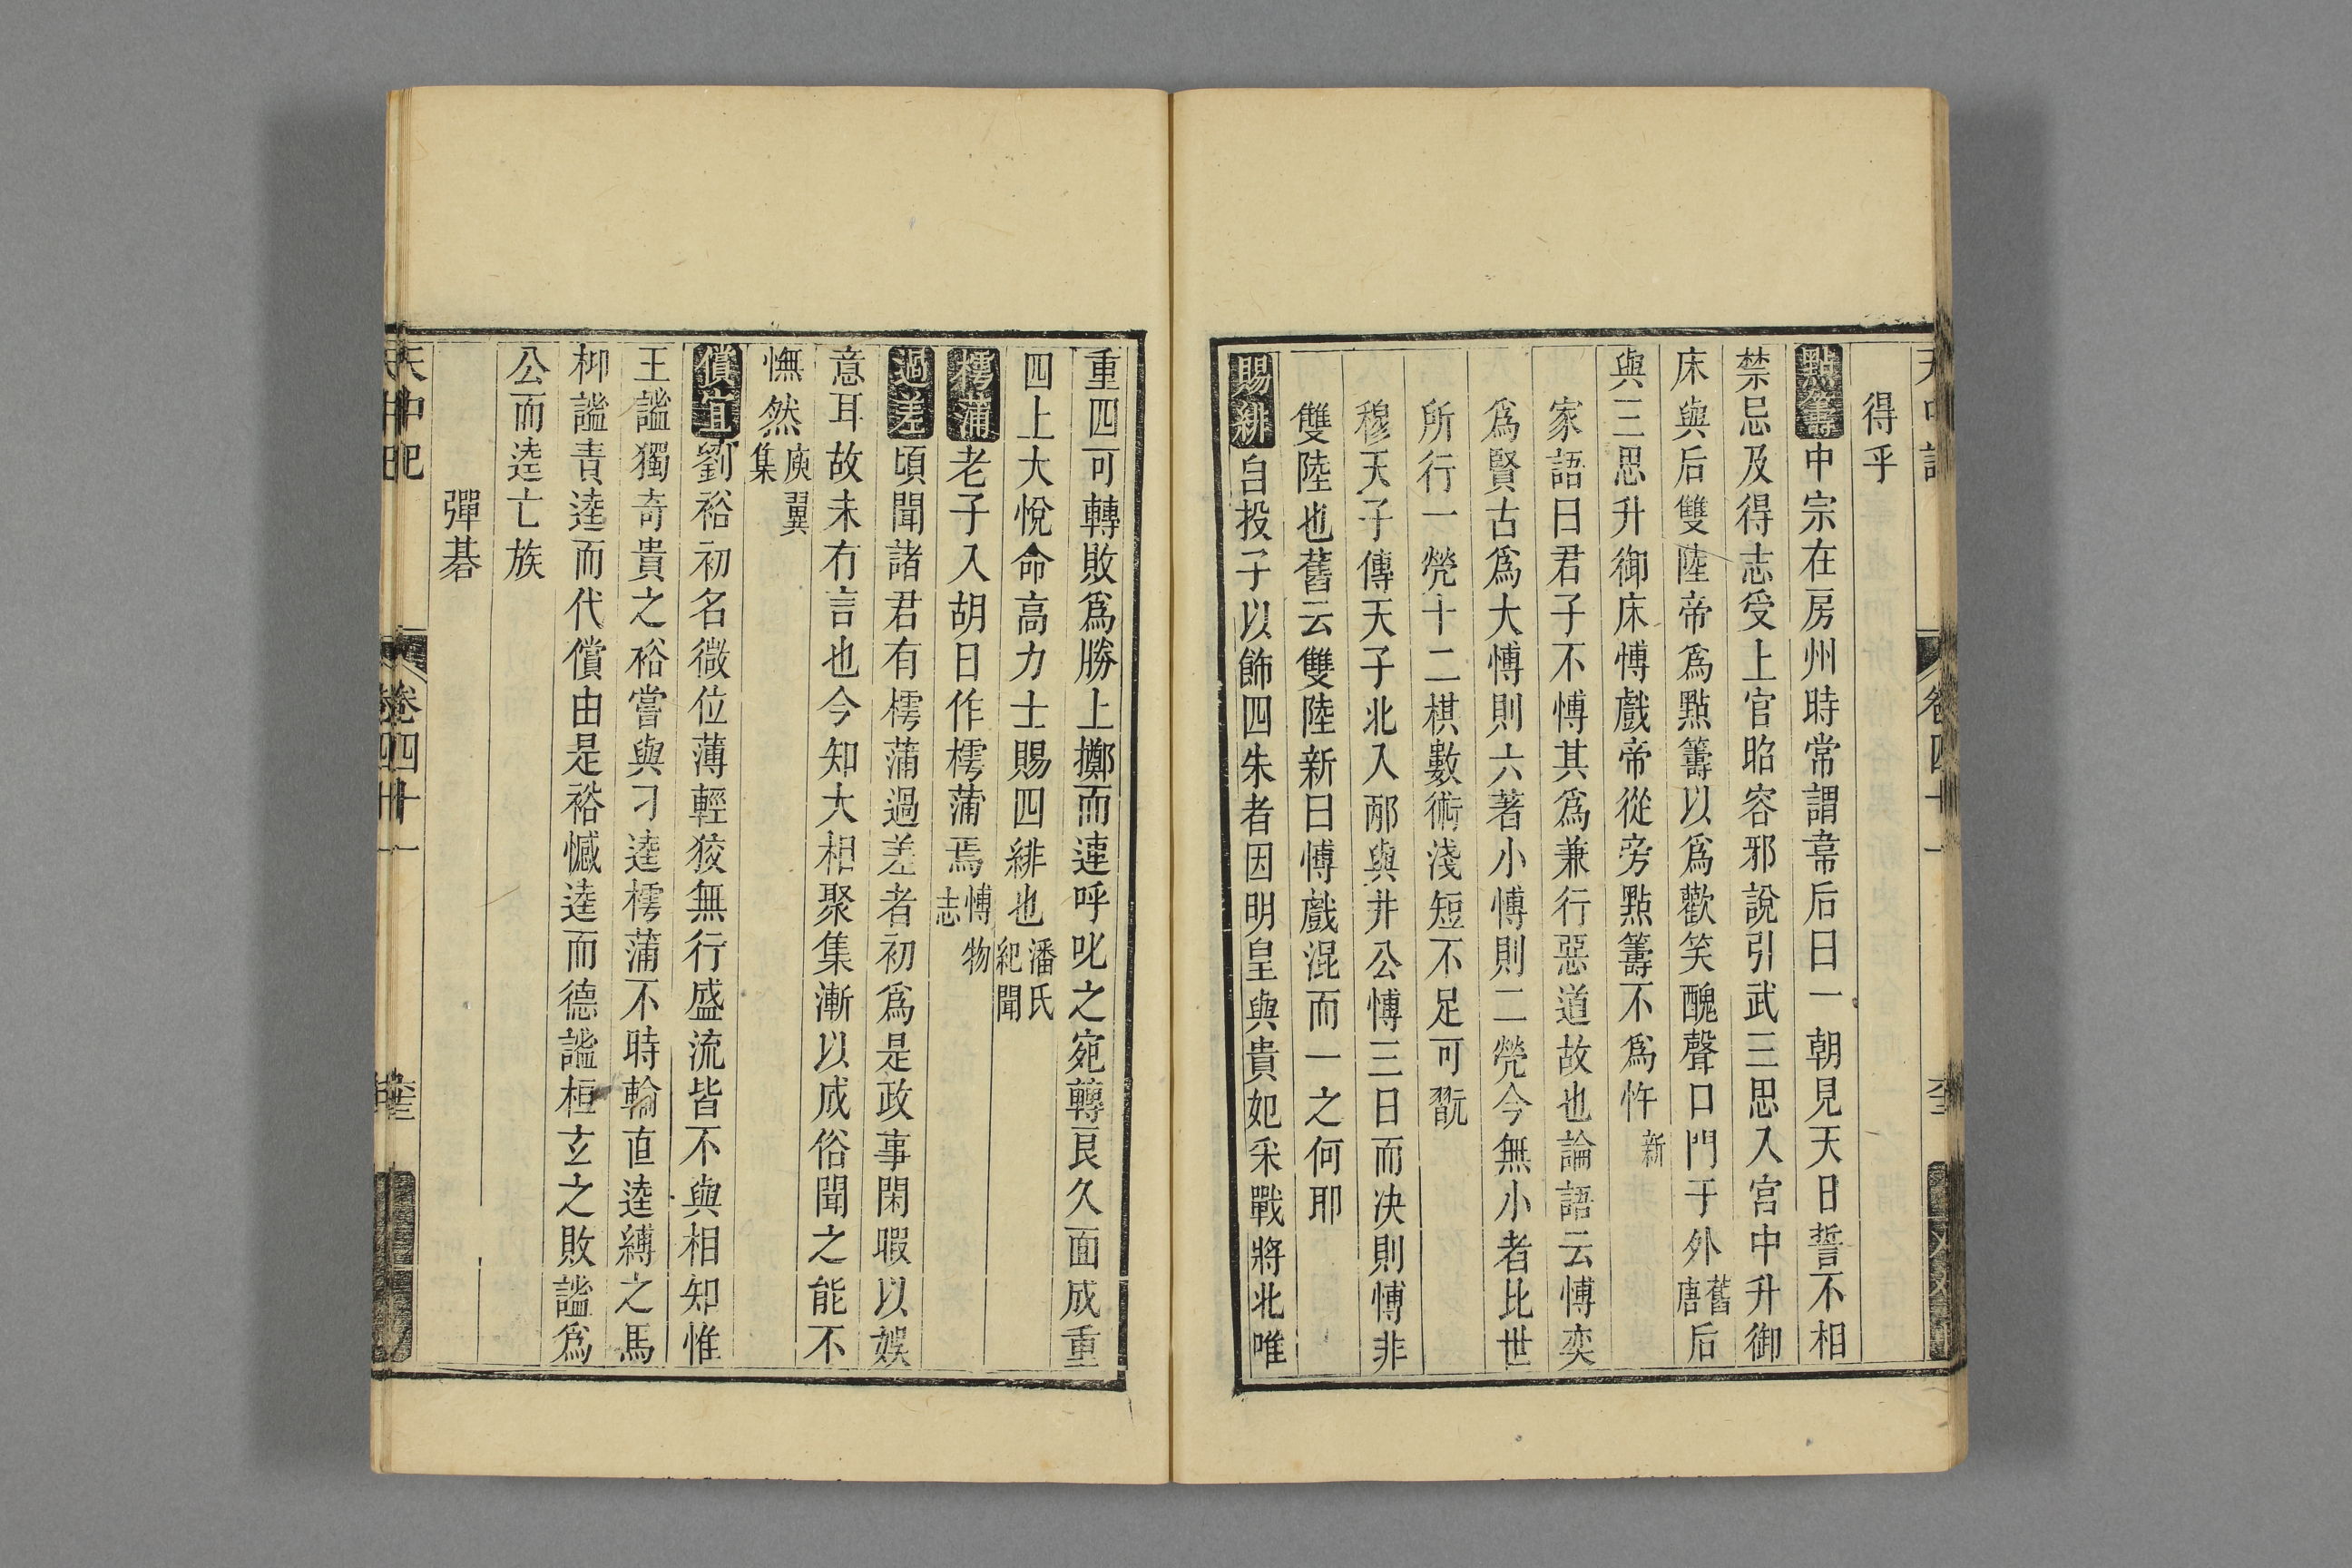 得乎
點籌中宗在房州時常謂韋后曰一朝見天日誓不相
禁忌及得志受上官昭容邪說引武三思入宮中升御
床與后雙陸帝為點籌以為歡笑醜聲口門于外舊唐后
與三思升御床愽戲帝從旁點籌不為忤新
家語曰君子不愽其為兼行惡道故也論語云愽奕
為賢古為大愽則六著小愽則二焭今無小者比世
所行一焭十二棋數術淺短不足可翫
穆天子傳天子北入邴與井公愽三日而决則愽非
雙陸也舊云雙陸新曰愽戲混而一之何耶
賜緋自投子以飾四朱者因明皇與貴妃采戰將北唯
重四可轉敗為勝上擲而連呼叱之宛轉良久而成重
四上大悅命高力士賜四緋也潘氏紀聞
樗蒲老子入胡曰作樗蒲焉愽物志
過差頃聞諸君有樗蒲過差者初為是政事閑暇以娛
意耳故未有言也今知大相聚集漸以成俗聞之能不
憮然庾翼集
償直劉裕初名微位薄輕狡無行盛流皆不與相知惟
王謐獨奇貴之裕嘗與刁逵樗蒲不時輸直逵縛之馬
柳謐責逵而代償由是裕憾逵而德謐桓玄之敗謐為
公而逵亡族
彈棊
天中記 卷四十一